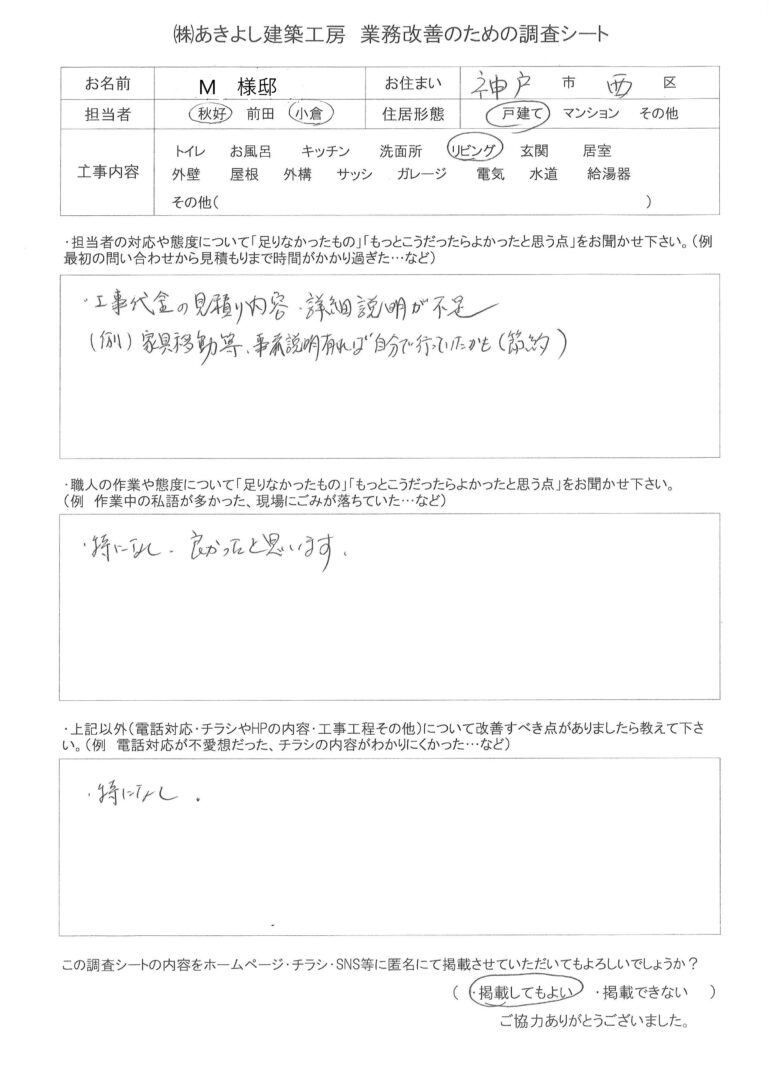 ㈱あきよし建築工房 業務改善のための調査シート
お名前 M 様邸 お住まい 神戸 市 西 区
担当者 秋好 前田 小倉 住居形態 戸建て マンション その他
工事内容 トイレ お風呂 キッチン 洗面所 リビング 玄関 居室
外壁 屋根 外構 サッシ ガレージ 電気 水道 給湯器
その他( )
・担当者の対応や態度について「足りなかったもの」「もっとこうだったらよかったと思う点」をお聞かせ下さい。(例
最初の問い合わせから見積もりまで時間がかかり過ぎた…など)
・工事代金の見積り内容・詳細説明が不足
(例) 家具移動等、事前説明有れば自分で行っていたかも(節約)
・職人の作業や態度について「足りなかったもの」「もっとこうだったらよかったと思う点」をお聞かせ下さい。
(例 作業中の私語が多かった、現場にごみが落ちていた…など)
・特になし、良かったと思います。
・上記以外(電話対応・チラシやHPの内容・工事工程その他)について改善すべき点がありましたら教えて下さ
い。(例 電話対応が不愛想だった、チラシの内容がわかりにくかった…など)
・特になし。
この調査シートの内容をホームページ・チラシ・SNS等に匿名にて掲載させていただいてもよろしいでしょうか?
( ・掲載してもよい ・掲載できない )
ご協力ありがとうございました。